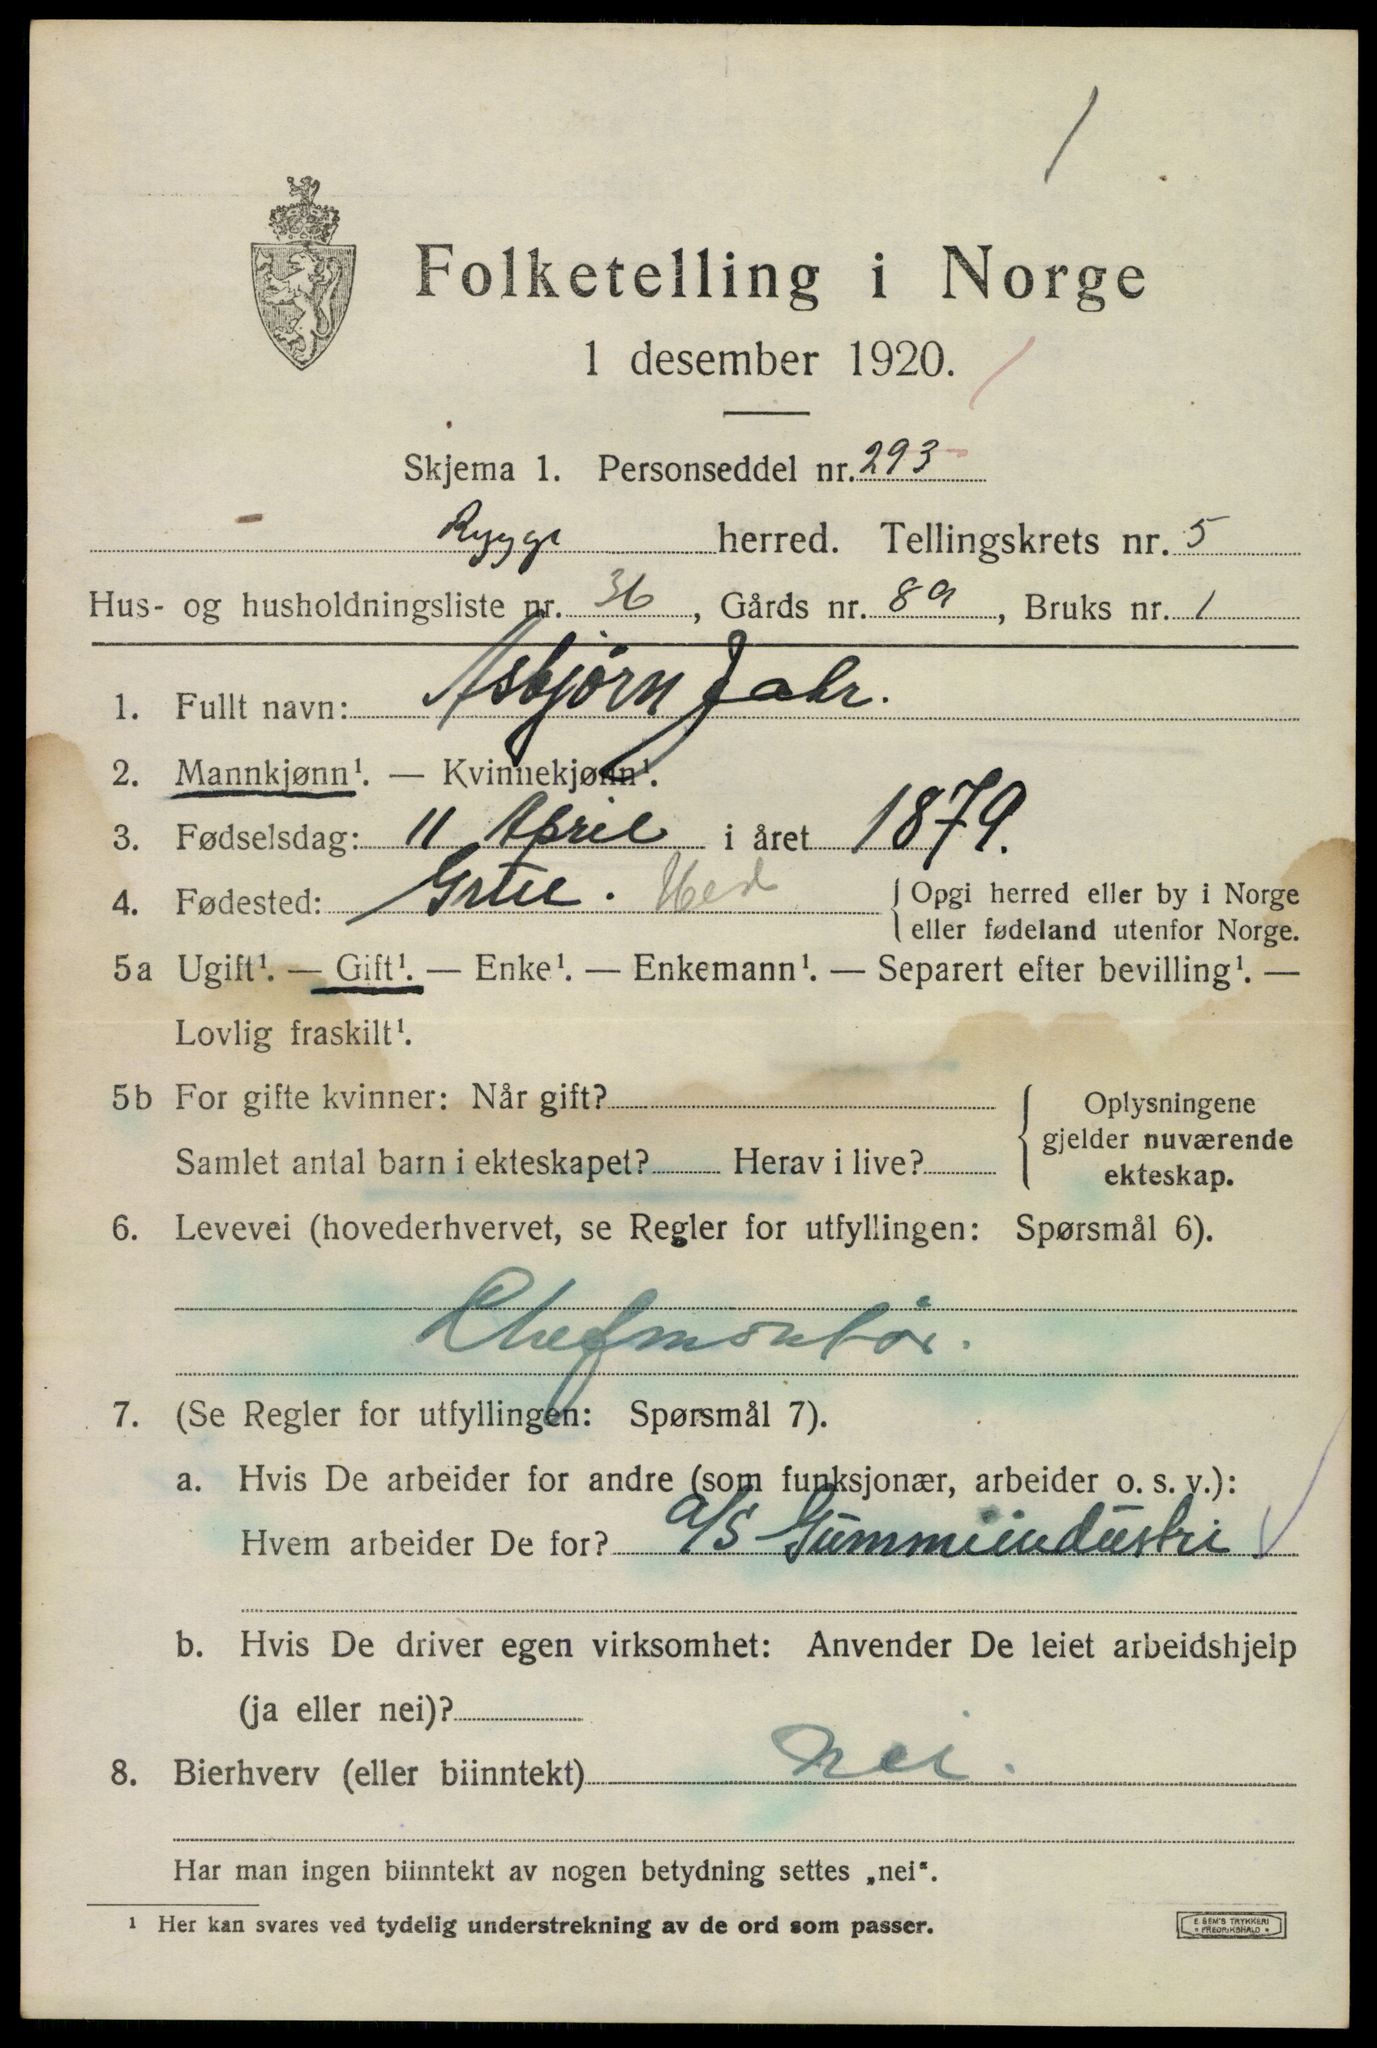 Folketelling i Norge
1 desember 1920.
Skjema 1. Personseddel nr. 293
Rygge herred. Tellingskrets nr. 5
Hus- og husholdningsliste nr. 36, Gårds nr. 89, Bruks nr. 1
1. Fullt navn: Asbjørn Jahr.
2. Mannkjønn¹. — Kvinnekjønn¹.
3. Fødselsdag: 11 April i året 1879.
4. Fødested: Grue. Hed { Opgi herred eller by i Norge
eller fødeland utenfor Norge.
5a Ugift¹. — Gift¹. — Enke¹. — Enkemann¹. — Separert efter bevilling¹. —
Lovlig fraskilt¹.
5b For gifte kvinner: Når gift?
Samlet antal barn i ekteskapet? Herav i live?
{ Oplysningene
gjelder nuværende
ekteskap.
6. Levevei (hovederhvervet, se Regler for utfyllingen: Spørsmål 6).
Chefmontør.
7. (Se Regler for utfyllingen: Spørsmål 7).
a. Hvis De arbeider for andre (som funksjonær, arbeider o. s. v.):
Hvem arbeider De for? A/S Gummiindustri
b. Hvis De driver egen virksomhet: Anvender De leiet arbeidshjelp
(ja eller nei)?
8. Bierhverv (eller biinntekt) Nei.
Har man ingen biinntekt av nogen betydning settes „nei“.
¹ Her kan svares ved tydelig understrekning av de ord som passer.
E. SEM'S TRYKKERI
* FREDRIKSHALD *